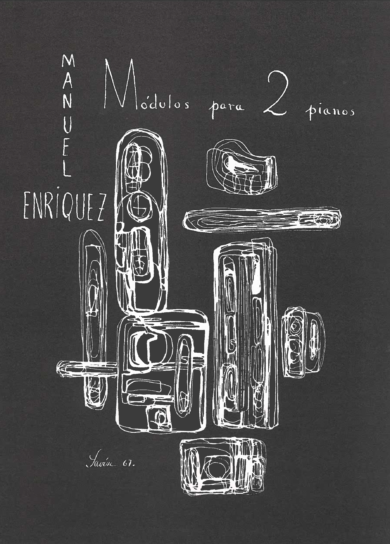 MANUEL
ENRIQUEZ
Módulos para 2 pianos
67.